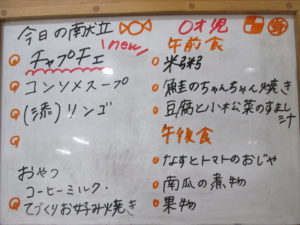 今日の献立
new
チャプチェ
コンソメスープ
(添)リンゴ
おやつ
コーヒーミルク・
てづくりお好み焼き
0才児
午前食
米粥
鮭のちゃんちゃん焼き
豆腐と小松菜のすまし
汁
午後食
なすとトマトのおじや
南瓜の煮物
果物